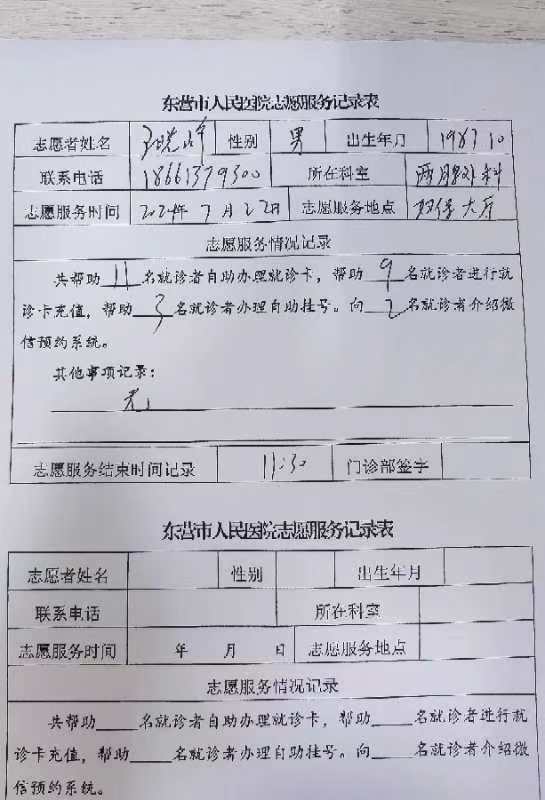 东营市人民医院志愿服务记录表
志愿者姓名 性别 男 出生年月 1987 10
联系电话 18661379300 所在科室 外科
志愿服务时间 2024年7月22日 志愿服务地点 大厅
志愿服务情况记录
共帮助11名就诊者自助办理就诊卡,帮助9名就诊者进行就
诊卡充值,帮助3名就诊者办理自助挂号。向2名就诊者介绍微
信预约系统。
其他事项记录:
无
志愿服务结束时间记录 11:30 门诊部签字
东营市人民医院志愿服务记录表
志愿者姓名 性别 出生年月
联系电话 所在科室
志愿服务时间 年 月 日 志愿服务地点
志愿服务情况记录
共帮助____名就诊者自助办理就诊卡,帮助____名就诊者进行就
诊卡充值,帮助____名就诊者办理自助挂号。向____名就诊者介绍微
信预约系统。